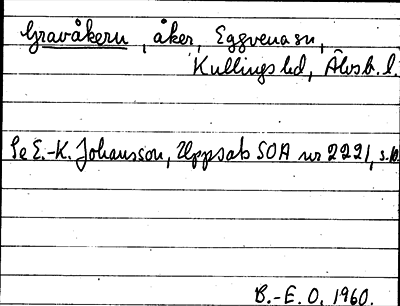 Gravåkern, åker, Eggvena sn,
Kullings hd, Älvsb. l.
Se E.-K. Johansson, Uppsats SOA nr 2221, s. 10
B.-E. O. 1960.